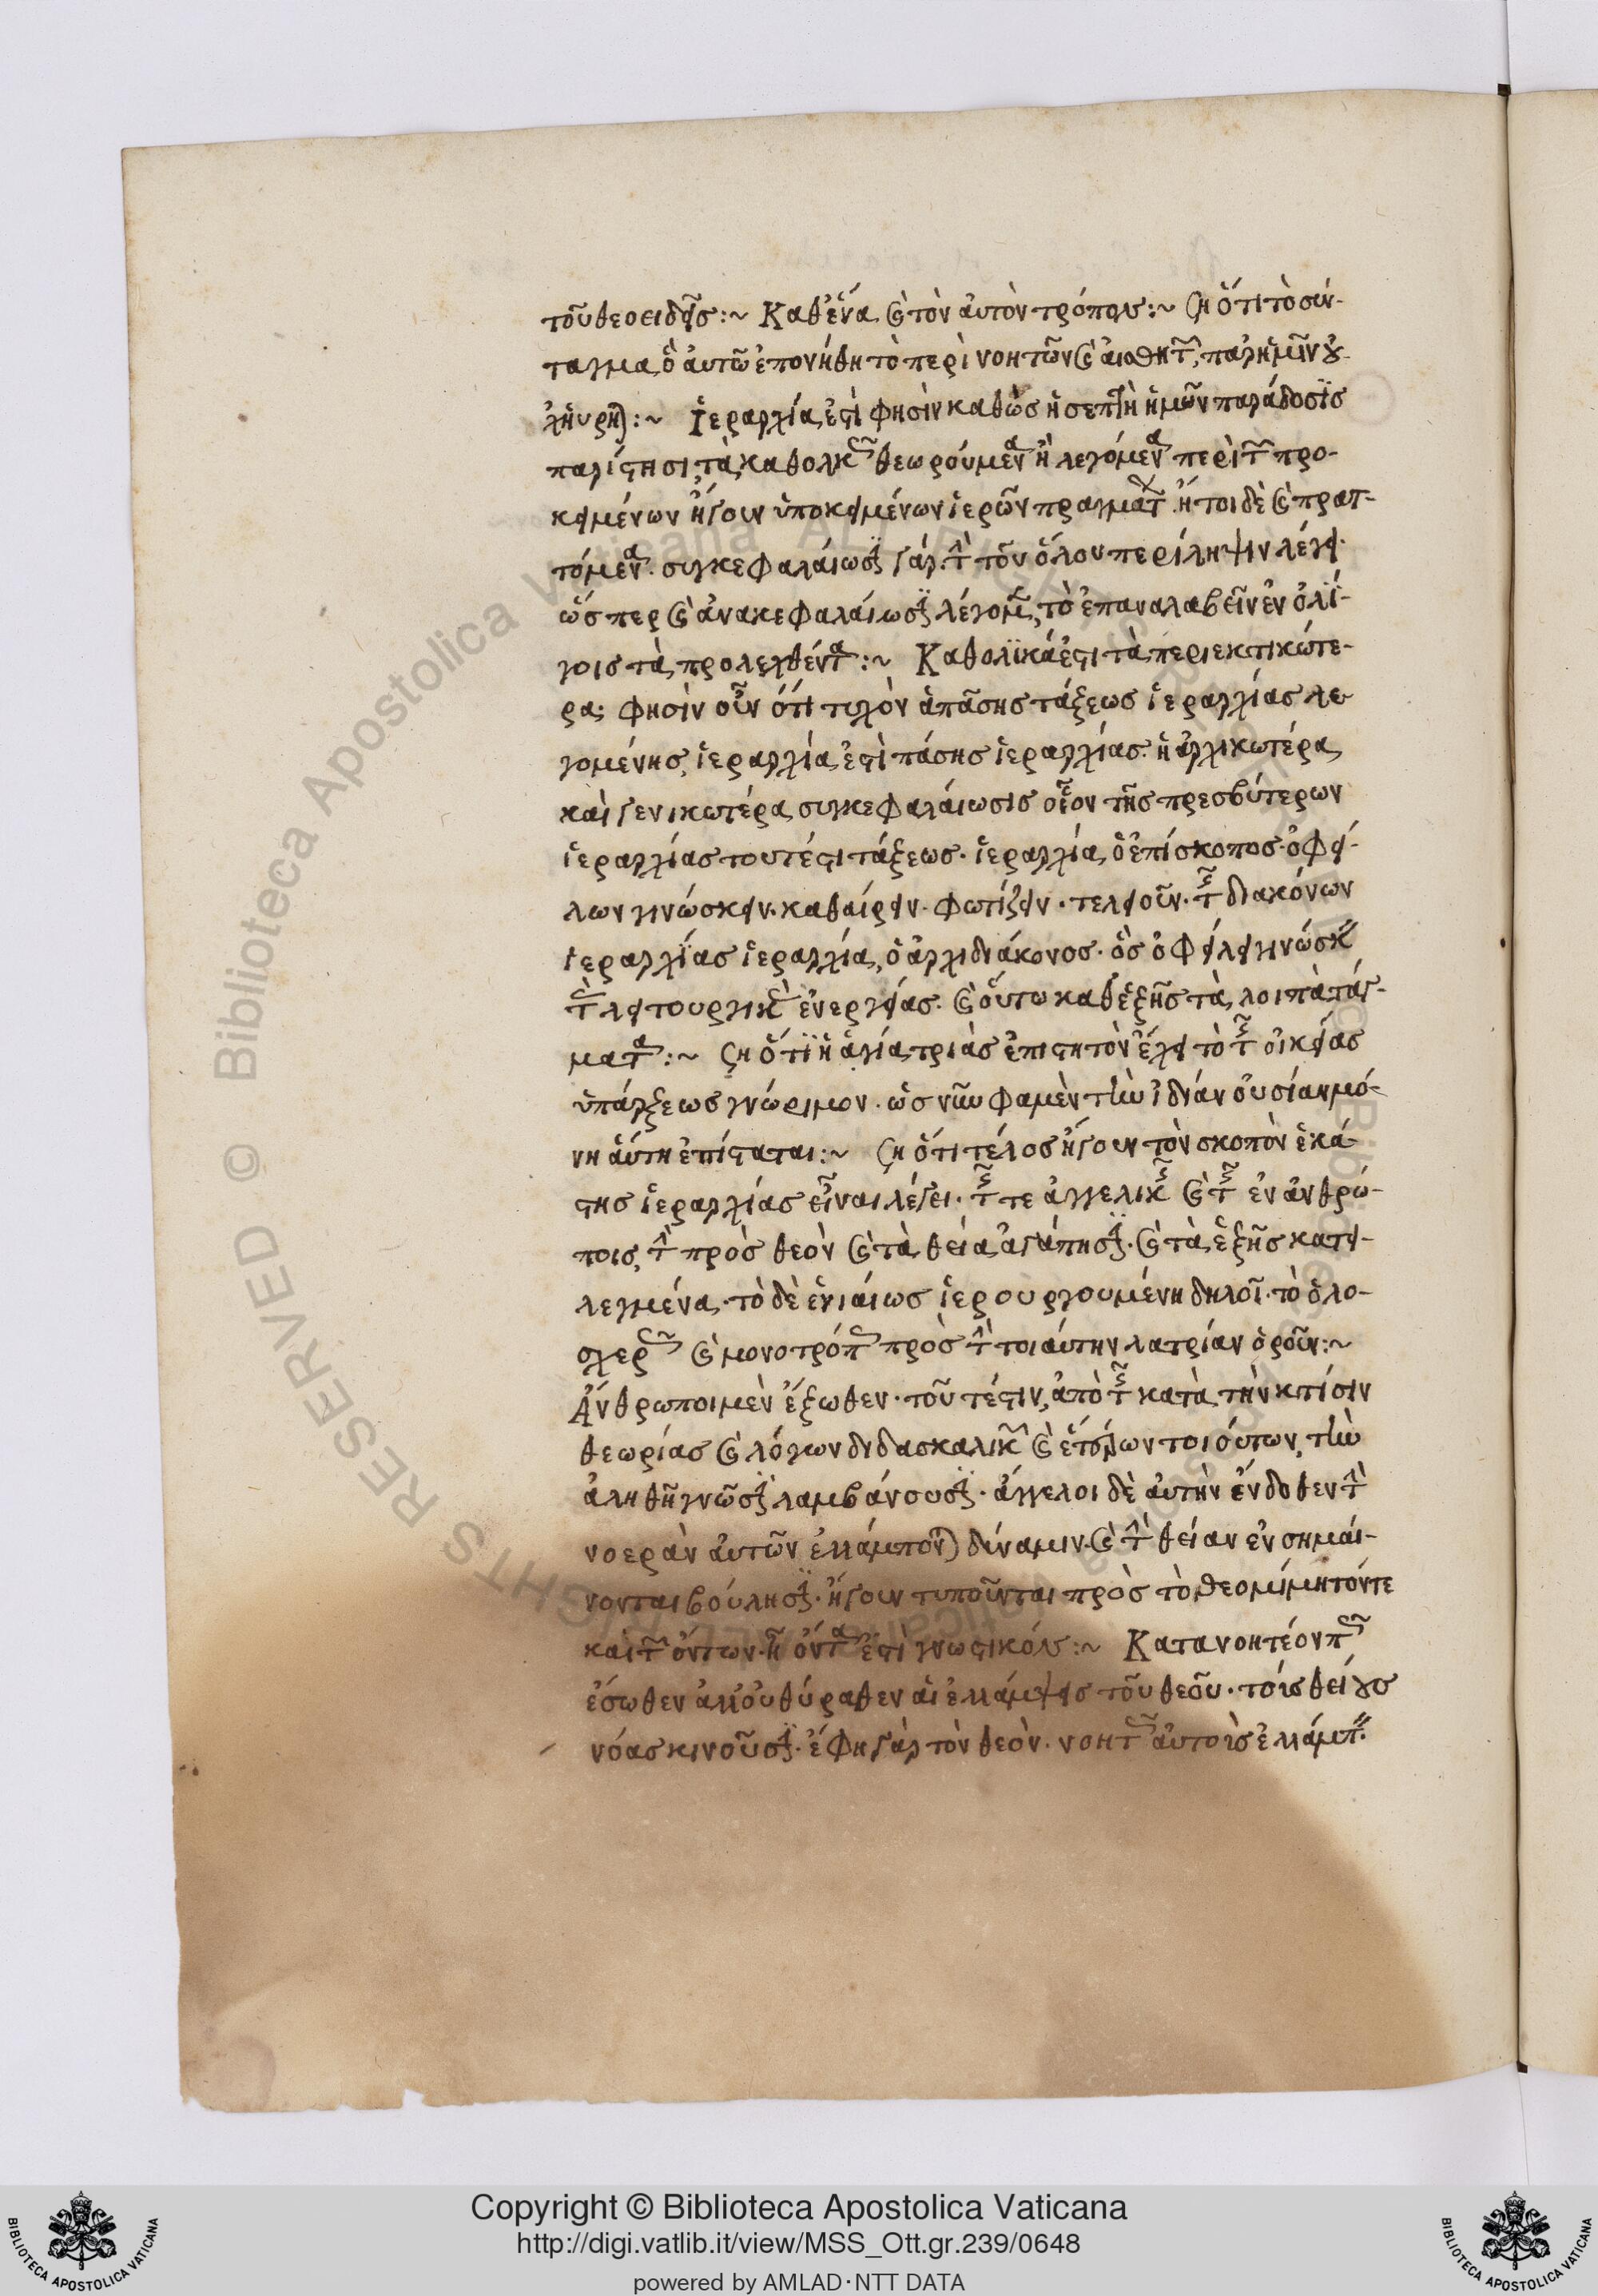 τοῦ θεοειδεῖς :~ Καθ' ἕνα καὶ τὸν αὐτὸν τρόπον :~ Ση ὅτι τὸ σύν-
ταγμα ὃ αὐτῷ ἐπονήθη τὸ περὶ νοητῶν καὶ αἰσθητῶν, παρ' ἡμῖν οὐ-
χ ηὕρηται :~ Ἱεραρχία ἐστὶ φησὶν καθὼς ἡ σεπτὴ ἡμῶν παράδοσις
παρίστησι, τὰ καθολικῶς θεωρούμενα ἢ λεγόμενα περὶ τῶν προ-
κειμένων ἤγουν ὑποκειμένων ἱερῶν πραγμάτων. ἤτοι δὲ καὶ πρατ-
τόμενα. συγκεφαλαίωσιν γὰρ τὴν τοῦ ὅλου περίληψιν λέγει.
ὥσπερ καὶ ἀνακεφαλαίωσιν λέγομεν, τὸ ἐπαναλαβεῖν ἐν ὀλί-
γοις τὰ προλεχθέντα :~ Καθολικά ἐστι τὰ περιεκτικώτε-
ρα; φησὶν οὖν ὅτι τυχὸν ἁπάσης τάξεως ἱεραρχίας λε
γομένης, ἱεραρχία ἐστὶ πάσης ἱεραρχίας. ἡ ἀρχικωτέρα
καὶ γενικωτέρα συγκεφαλαίωσις οἷον τῆς πρεσβυτέρων
ἱεραρχίας τουτέστι τάξεως. ἱεραρχία, ὁ ἐπίσκοπος. ὀφεί-
λων γινώσκειν. καθαίρειν. φωτίζειν. τελειοῦν. τῆς διακόνων
ἱεραρχίας ἱεραρχία, ὁ ἀρχιδιάκονος. ὃς ὀφείλει γινώσκειν
τὰς λειτουργικὰς ἐνεργείας. καὶ οὕτω καθεξῆς τὰ λοιπὰ τάγ-
ματα :~ Ση ὅτι ἡ ἁγία τριὰς ἐπιστητὸν ἔχει τὸ τῆς οἰκείας
ὑπάρξεως γνώριμον. ὡς νῦν φαμὲν τὴν ἰδίαν οὐσίαν μό-
νη αὕτη ἐπίσταται :~ Ση ὅτι τέλος ἤγουν τὸν σκοπὸν ἑκά
στης ἱεραρχίας εἶναι λέγει. τῆς τε ἀγγελικῆς καὶ τῆς ἐν ἀνθρώ-
ποις, τὴν πρὸς θεὸν καὶ τὰ θεῖα ἀγάπησιν. καὶ τὰ ἑξῆς κατει-
λεγμένα. τὸ δὲ ἑνιαίως ἱερουργουμένη δηλοῖ. τὸ ὁλο-
σχερῶς καὶ μονοτρόπως πρὸς τὴν τοιαύτην λατρίαν ὁροῦν :~
Ἄνθρωποι μὲν ἔξωθεν. τοῦτέστιν, ἀπὸ τῆς κατὰ τὴν κτίσιν
θεωρίας καὶ λόγων διδασκαλικῶν καὶ ἑτέρων τοιούτων, τὴν
ἀληθῆ γνῶσιν λαμβάνουσιν. ἄγγελοι δὲ αὐτὴν ἔνδοθεν τὴν
νοερὰν αὐτῶν ἐλλάμπονται δύναμιν. καὶ τὴν θείαν ἐνσημαί-
νονται βούλησιν. ἤγουν τυποῦνται πρὸς τὸ θεομίμητόν τε
καὶ τῶν ὄντων. ἧ ὄντα ἐστὶ γνωστικόν :~ Κατανοητέον πῶς
ἔσωθεν ἀλλ' οὐ θύραθεν αἱ ἐλλάμψεις τοῦ θεοῦ. τοῖς θείους
νόας κινοῦσιν. ἔφη γὰρ τὸν θεὸν. νοητῶς αὐτοῖς ἐλλάμπειν.
Copyright © Biblioteca Apostolica Vaticana
http://digi.vatlib.it/view/MSS_Ott.gr.239/0648
powered by AMLAD·NTT DATA